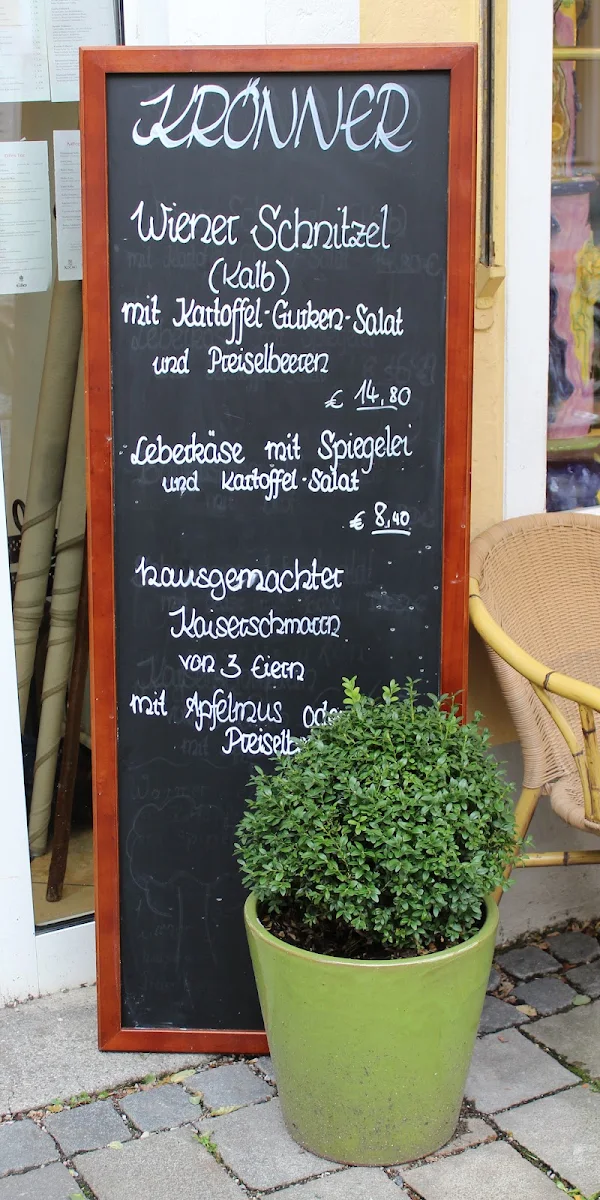 KRÖNNER
Wiener Schnitzel
(Kalb)
mit Kartoffel-Gurken-Salat
und Preiselbeeren
€ 14,80
Leberkäse mit Spiegelei
und Kartoffel-Salat
€ 8,40
hausgemachter
Kaiserschmarrn
von 3 Eiern
mit Apfelmus